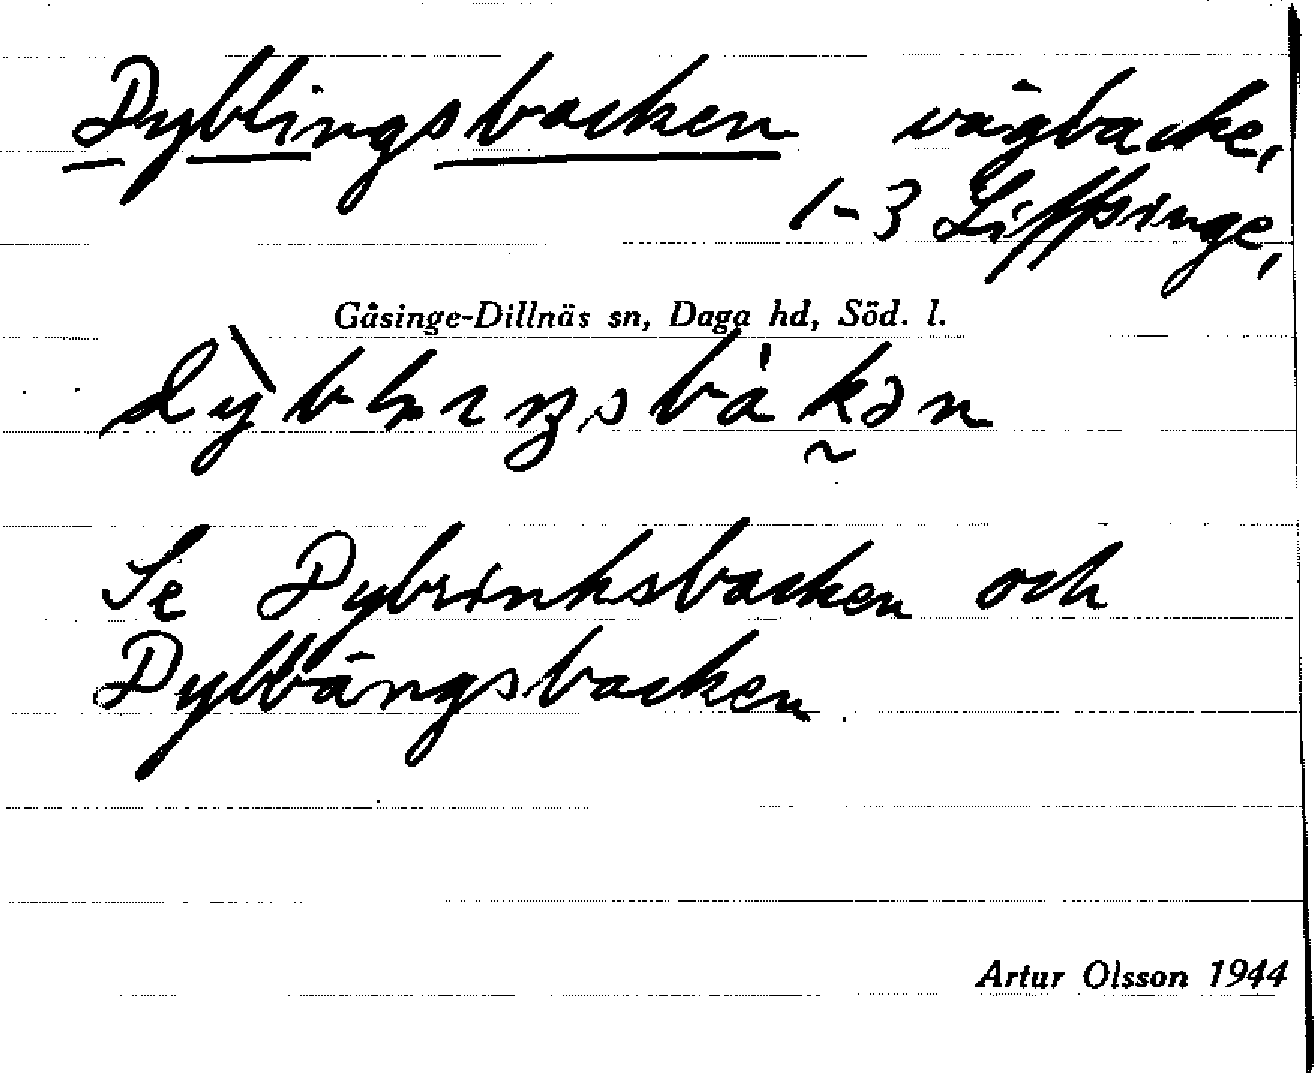 Dyblingsbacken vägbacke,
1-3 Liffsinge,
Gåsinge-Dillnäs sn, Daga hd, Söd. l.
Se Dybrinksbacken och
Dylbängsbacken
Artur Olsson 1944